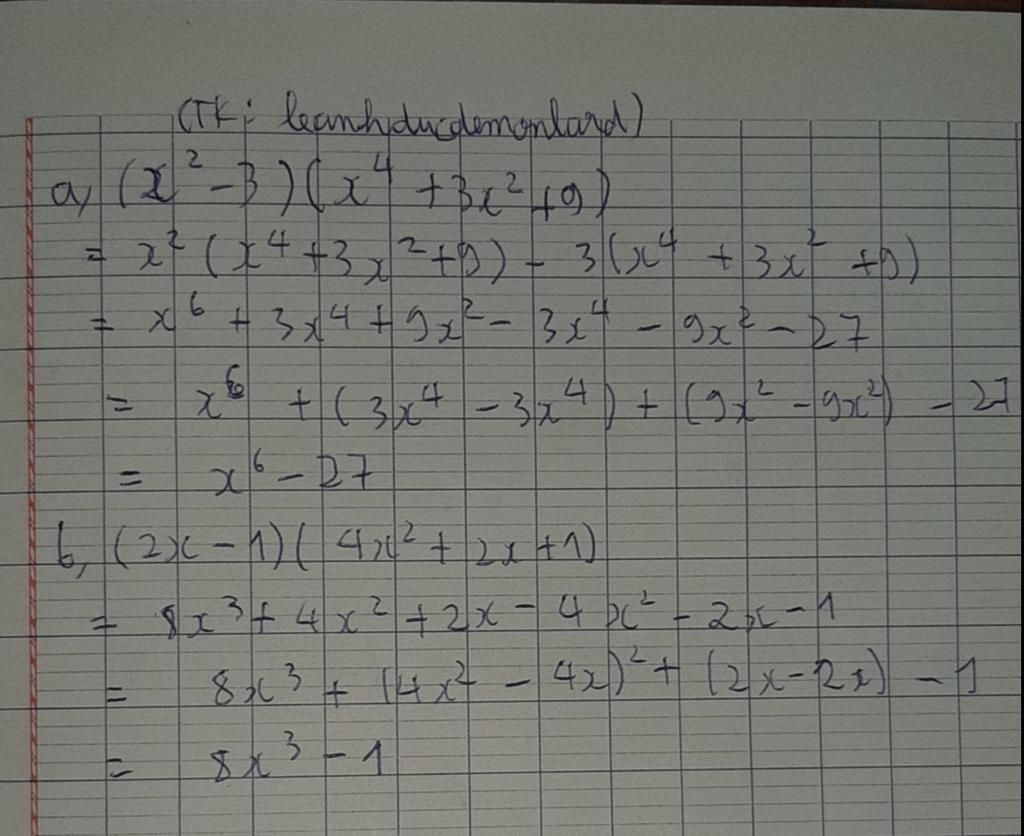 (TK: leanhducdemonlard)
a, (x² - 3)(x⁴ + 3x² + 9)
= x² (x⁴ + 3x² + 9) - 3(x⁴ + 3x² + 9)
= x⁶ + 3x⁴ + 9x² - 3x⁴ - 9x² - 27
= x⁶ + (3x⁴ - 3x⁴) + (9x² - 9x²) - 27
= x⁶ - 27
b, (2x - 1)(4x² + 2x + 1)
= 8x³ + 4x² + 2x - 4x² - 2x - 1
= 8x³ + (4x² - 4x)² + (2x - 2x) - 1
= 8x³ - 1